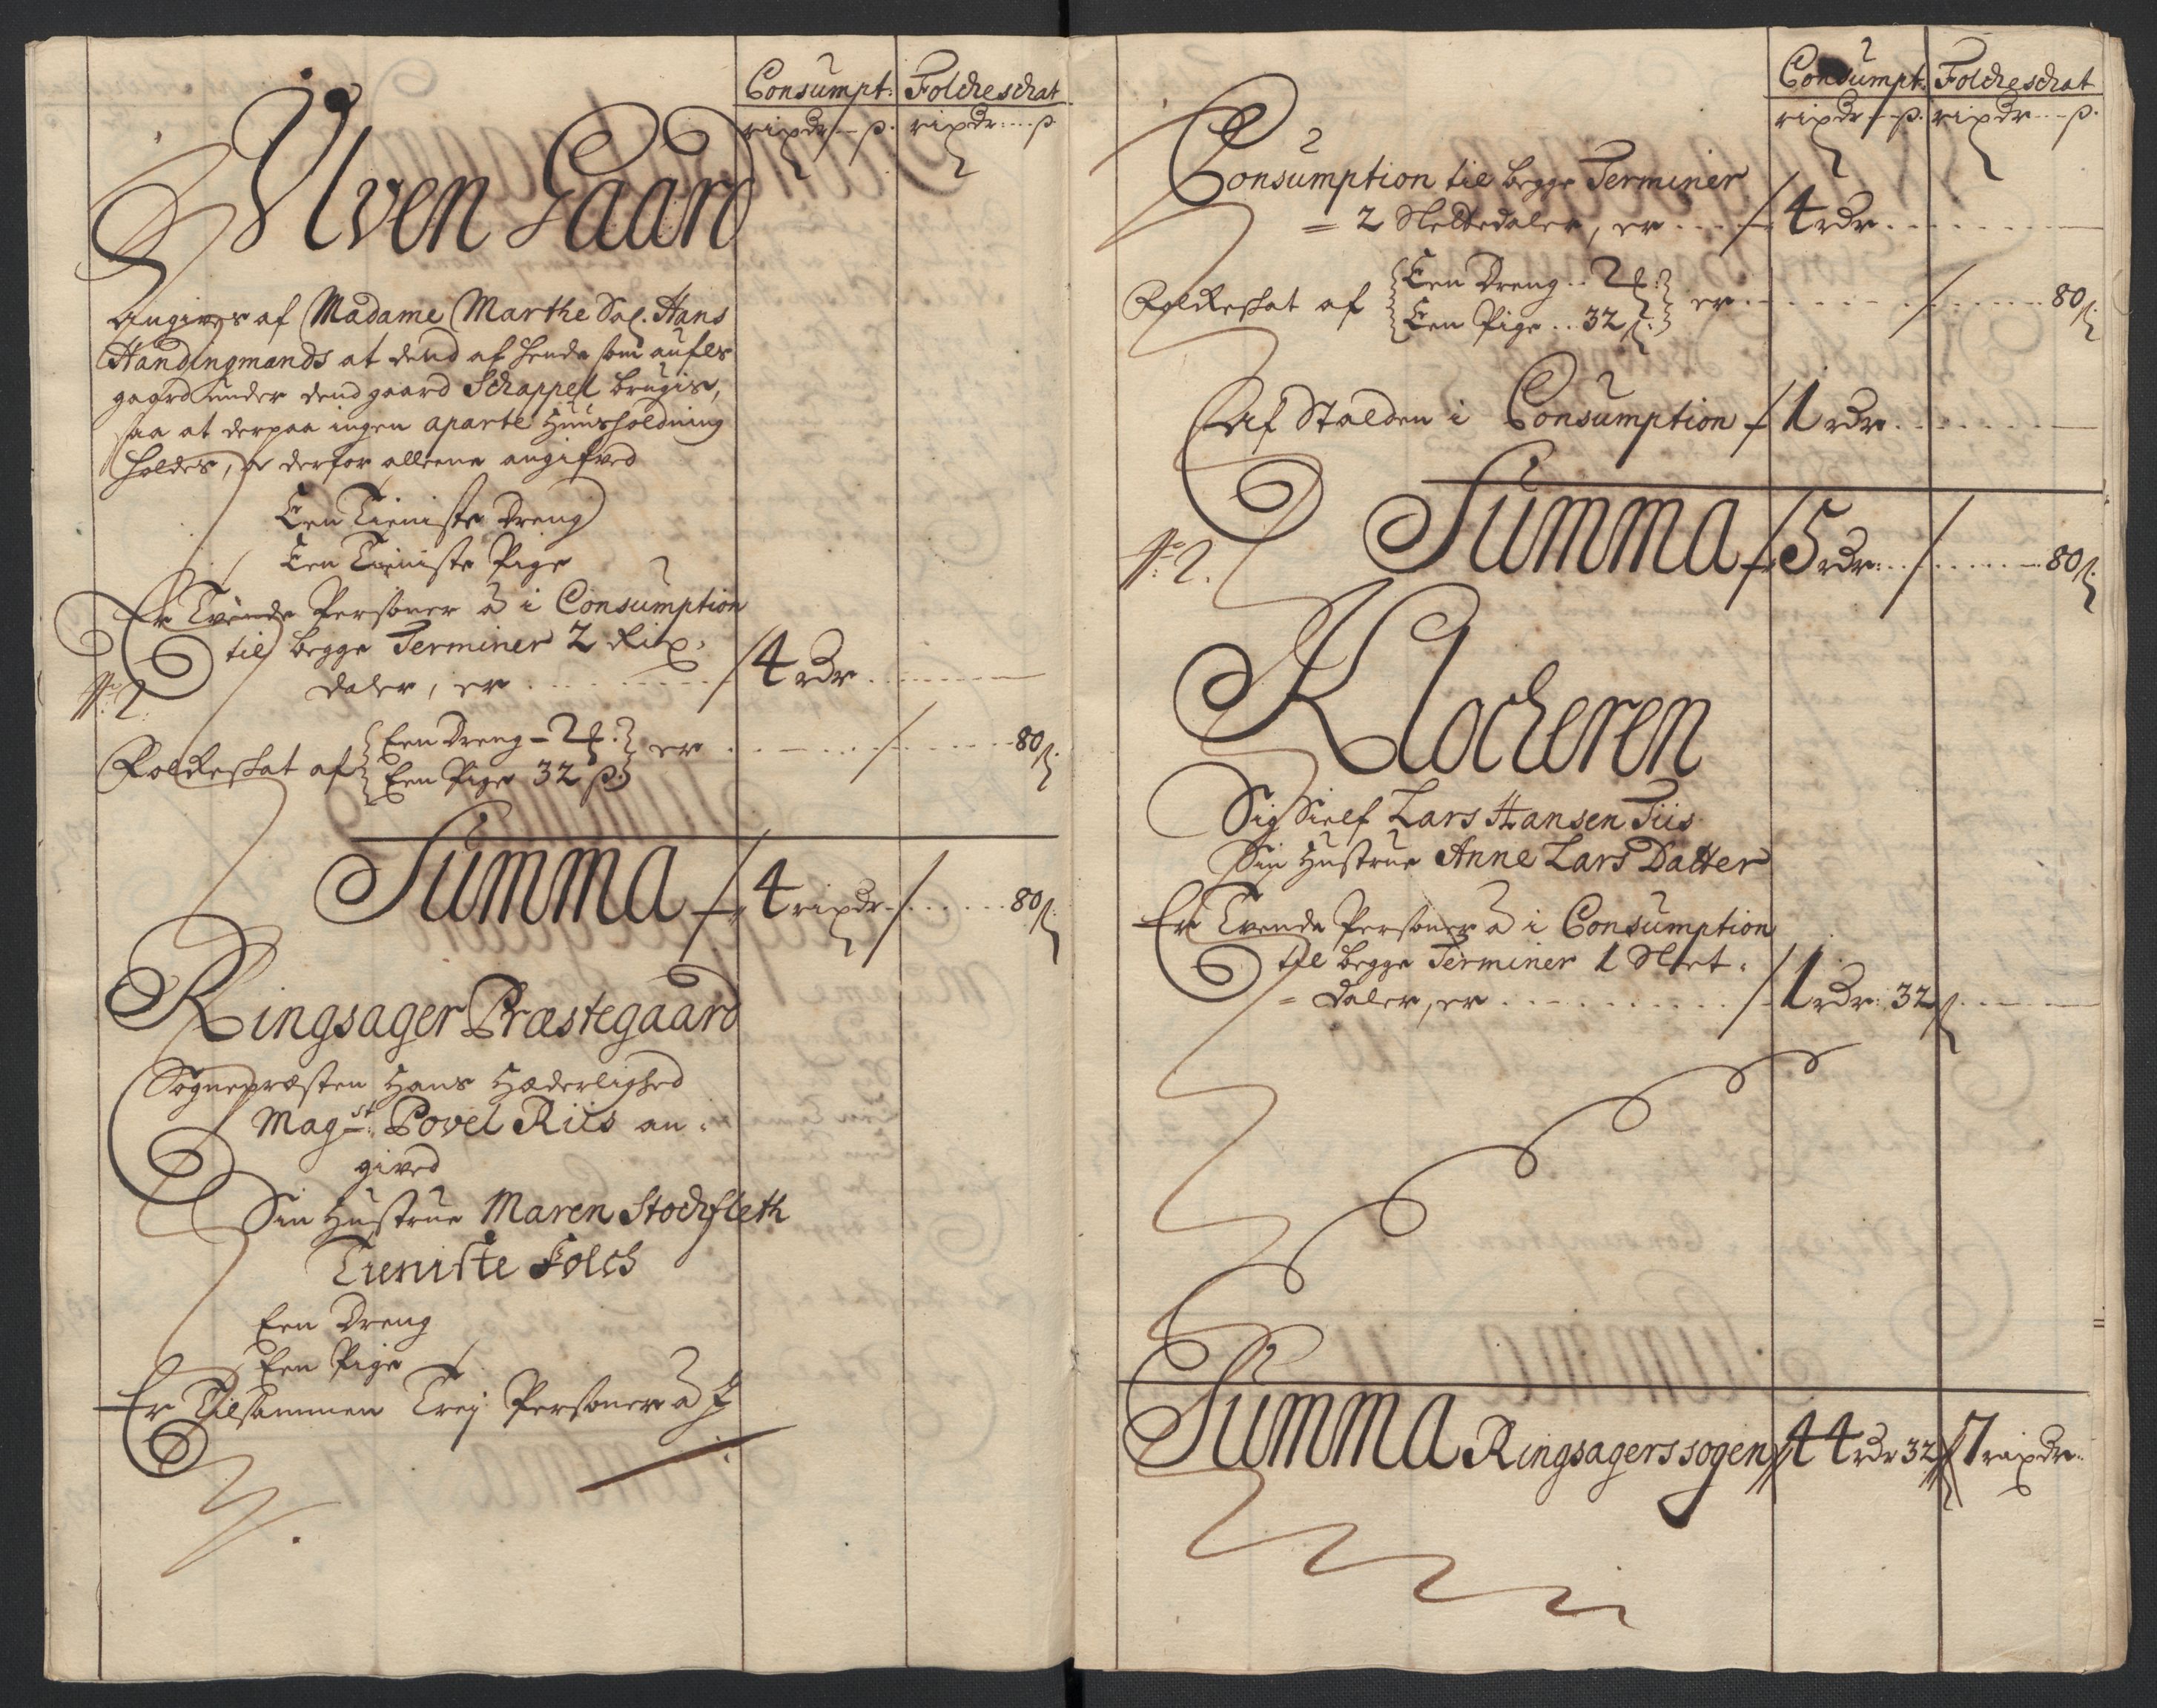 Consumpt: Folcheschat
rixdr--ß. rixdr:...ß
Ulven Gaard
Angives af Madame Marthe Sal. Hans
Handingmands at dend af hende som aufls
gaard under dend gaard Schappel brugis,
saa at derpaa ingen aparte Huusholdning
holdes, er derfor alleene angifved
Een Tieniste Dreng
Een Tieniste Pige
Er Tvende Personer â i Consumption
til begge Terminer 2 Rix,
daler, er ....... / 4 rdr.
No 2.
Folkeskat af { Een Dreng - 2 ȣ. } er ...... / ...... 80 ß.
{ Een Pige 32 ß. }
Summa / 4 rixdr. / ...... 80 ß.
Ringsager Præstegaard
Sognepræsten Hans Hæderlighed
Magst: Povel Riis an,
gived
Sin Hustrue Maren Stochfleth
Tieniste Folch
Een Dreng
Een Pige
Er Tilsammen Trej Personer â i
Consumpt: Folcheschat
rixdr--ß. rixdr...ß.
Consumption til begge Terminer
= 2 Slettedaler, er .... / 4 rdr.
Folkeskat af { Een Dreng .. 2 ȣ: } er ...... / ...... 80 ß.
{ Een Pige .. 32 ß: }
Af Stalden i Consumption / 1 rdr.
No 2. Summa / 5 rdr: / ...... 80 ß.
Klocheren
Sig Sielf Lars Hansen Tiis
Sin Hustrue Anne Lars Datter
Er Tvende Personer â i Consumption
til begge Terminer 1 Slet,
= daler, er ....... / 1 rdr: 32 ß.
Summa Ringsagers sogen // 44 rdr 32 ß // 7 rixdr.